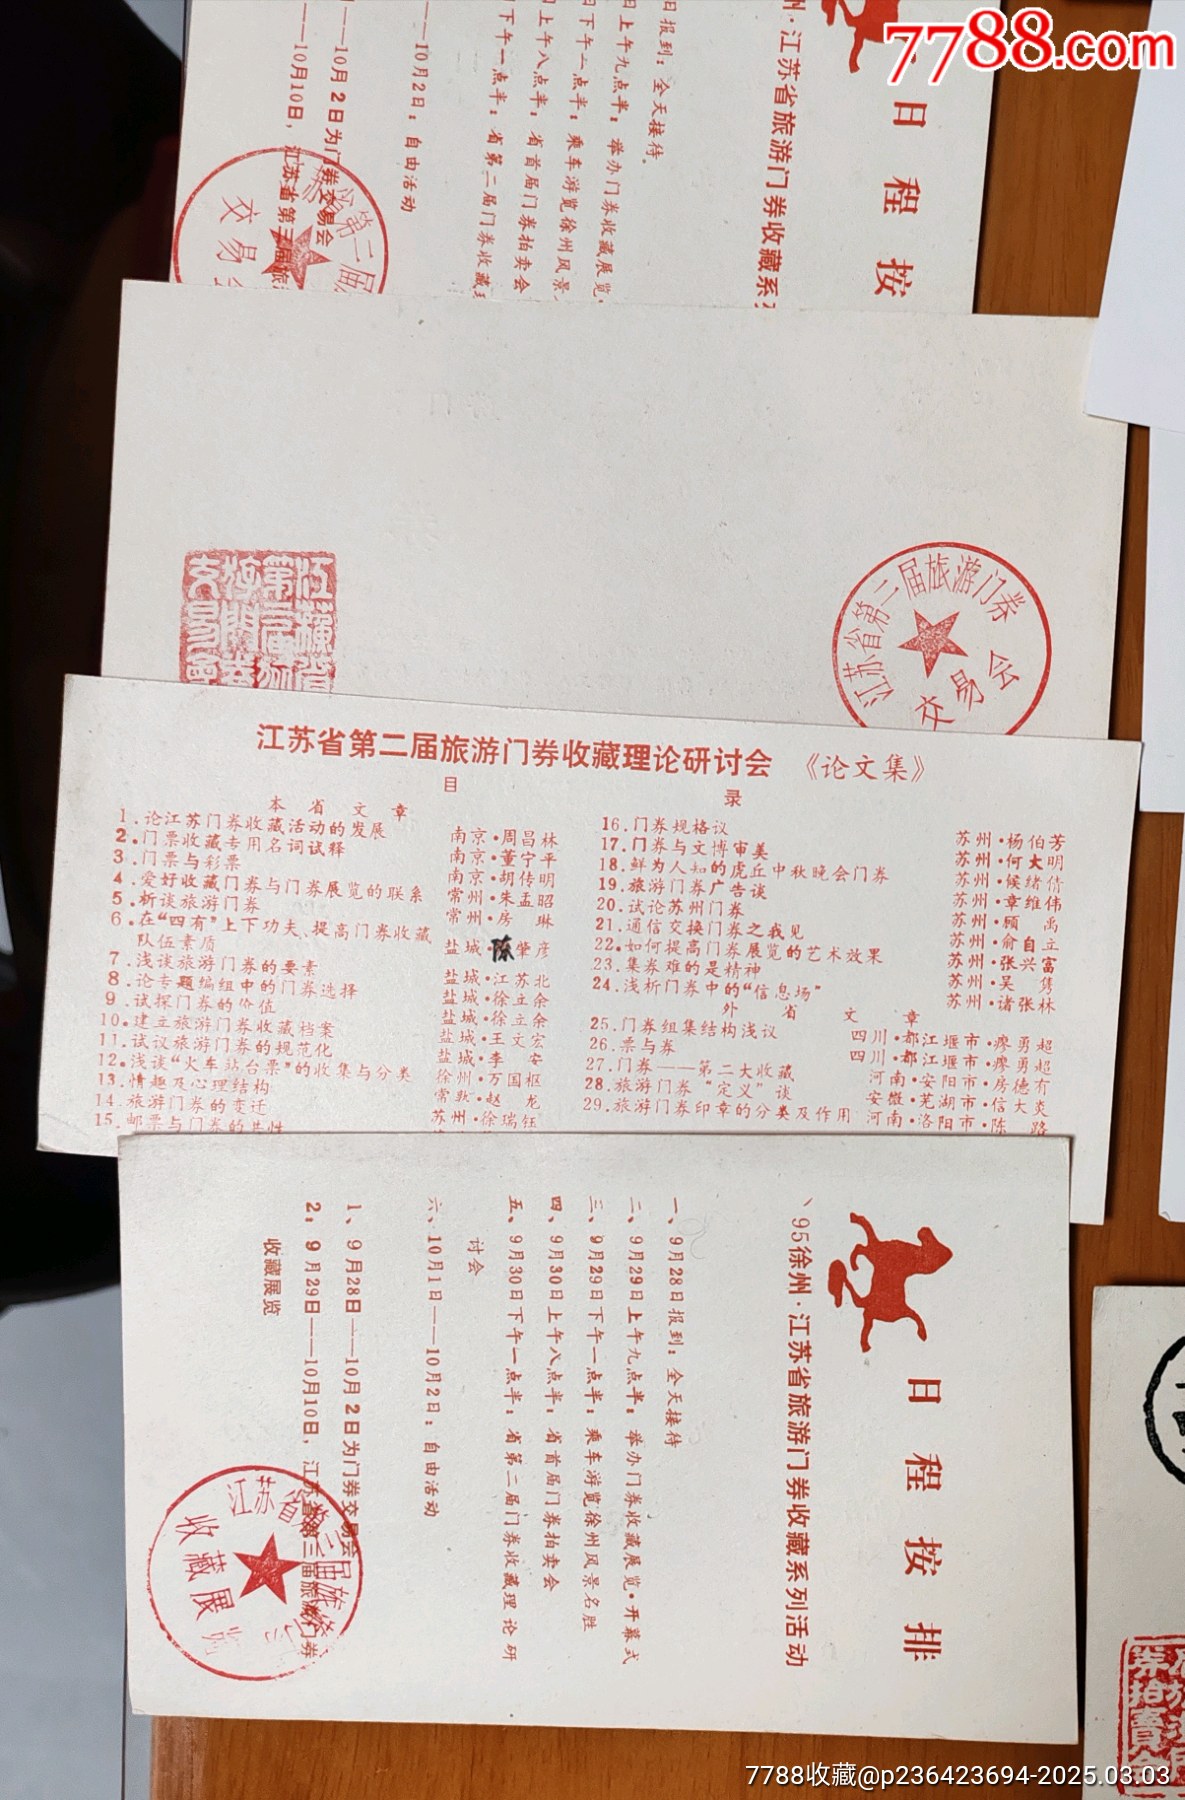 7788.com
日程按
州·江苏省旅游门券收藏系
日报到：全天接待。
日上午九点半：举办门券收藏展览
日下午一点半：乘车游览徐州风景
日上午八点半：省首届门券拍卖会
日下午一点半：省第二届门券收藏
——10月2日：自由活动
——10月2日为门券交易会
——10月10日，江苏省第三届旅
交易
江苏省第二届旅游门券
交易会
江苏省第二届旅游门券收藏理论研讨会 《论文集》
目 录
本省文章
1.论江苏门券收藏活动的发展 南京·周昌林
2.门票收藏专用名词试释 南京·董宁平
3.门票与彩票 南京·胡传明
4.爱好收藏门券与门券展览的联系 常州·朱孟昭
5.析谈旅游门券 常州·房 琳
6.在“四有”上下功夫、提高门券收藏
队伍素质 盐城·陈肇彦
7.浅谈旅游门券的要素 盐城·江苏北
8.论专题编组中的门券选择 盐城·徐立余
9.试探门券的价值 盐城·徐立余
10.建立旅游门券收藏档案 盐城·王文宏
11.试议旅游门券的规范化 盐城·李 安
12.浅谈“火车站台票”的收集与分类 徐州·万国枢
13.情趣及心理结构 常熟·赵 龙
14.旅游门券的变迁 苏州·徐瑞钰
15.邮票与门券的共性
16.门券规格议 苏州·杨伯芳
17.门券与文博审美 苏州·何大明
18.鲜为人知的虎丘中秋晚会门券 苏州·候绪倩
19.旅游门券广告谈 苏州·章维伟
20.试论苏州门券 苏州·顾 禹
21.通信交换门券之我见 苏州·俞自立
22.如何提高门券展览的艺术效果 苏州·张兴富
23.集券难的是精神 苏州·吴 隽
24.浅析门券中的“信息场” 苏州·诸张林
外省文章
25.门券组集结构浅议 四川·都江堰市·廖勇超
26.票与券 四川·都江堰市·廖勇超
27.门券——第二大收藏 河南·安阳市·房德有
28.旅游门券“定义”谈 安徽·芜湖市·信大炎
29.旅游门券印章的分类及作用 河南·洛阳市·陈 路
日程按排
、95徐州·江苏省旅游门券收藏系列活动
一、9月28日报到：全天接待
二、9月29日上午九点半：举办门券收藏展览·开幕式
三、9月29日下午一点半：乘车游览徐州风景名胜
四、9月30日上午八点半：省首届门券拍卖会
五、9月30日下午一点半：省第二届门券收藏理论研
讨会
六、10月1日——10月2日：自由活动
1、9月28日——10月2日为门券交易会
2：9月29日——10月10日，江苏省第三届旅游门券
收藏展览
江苏省第三届旅游
收藏展
7788收藏@p236423694-2025.03.03